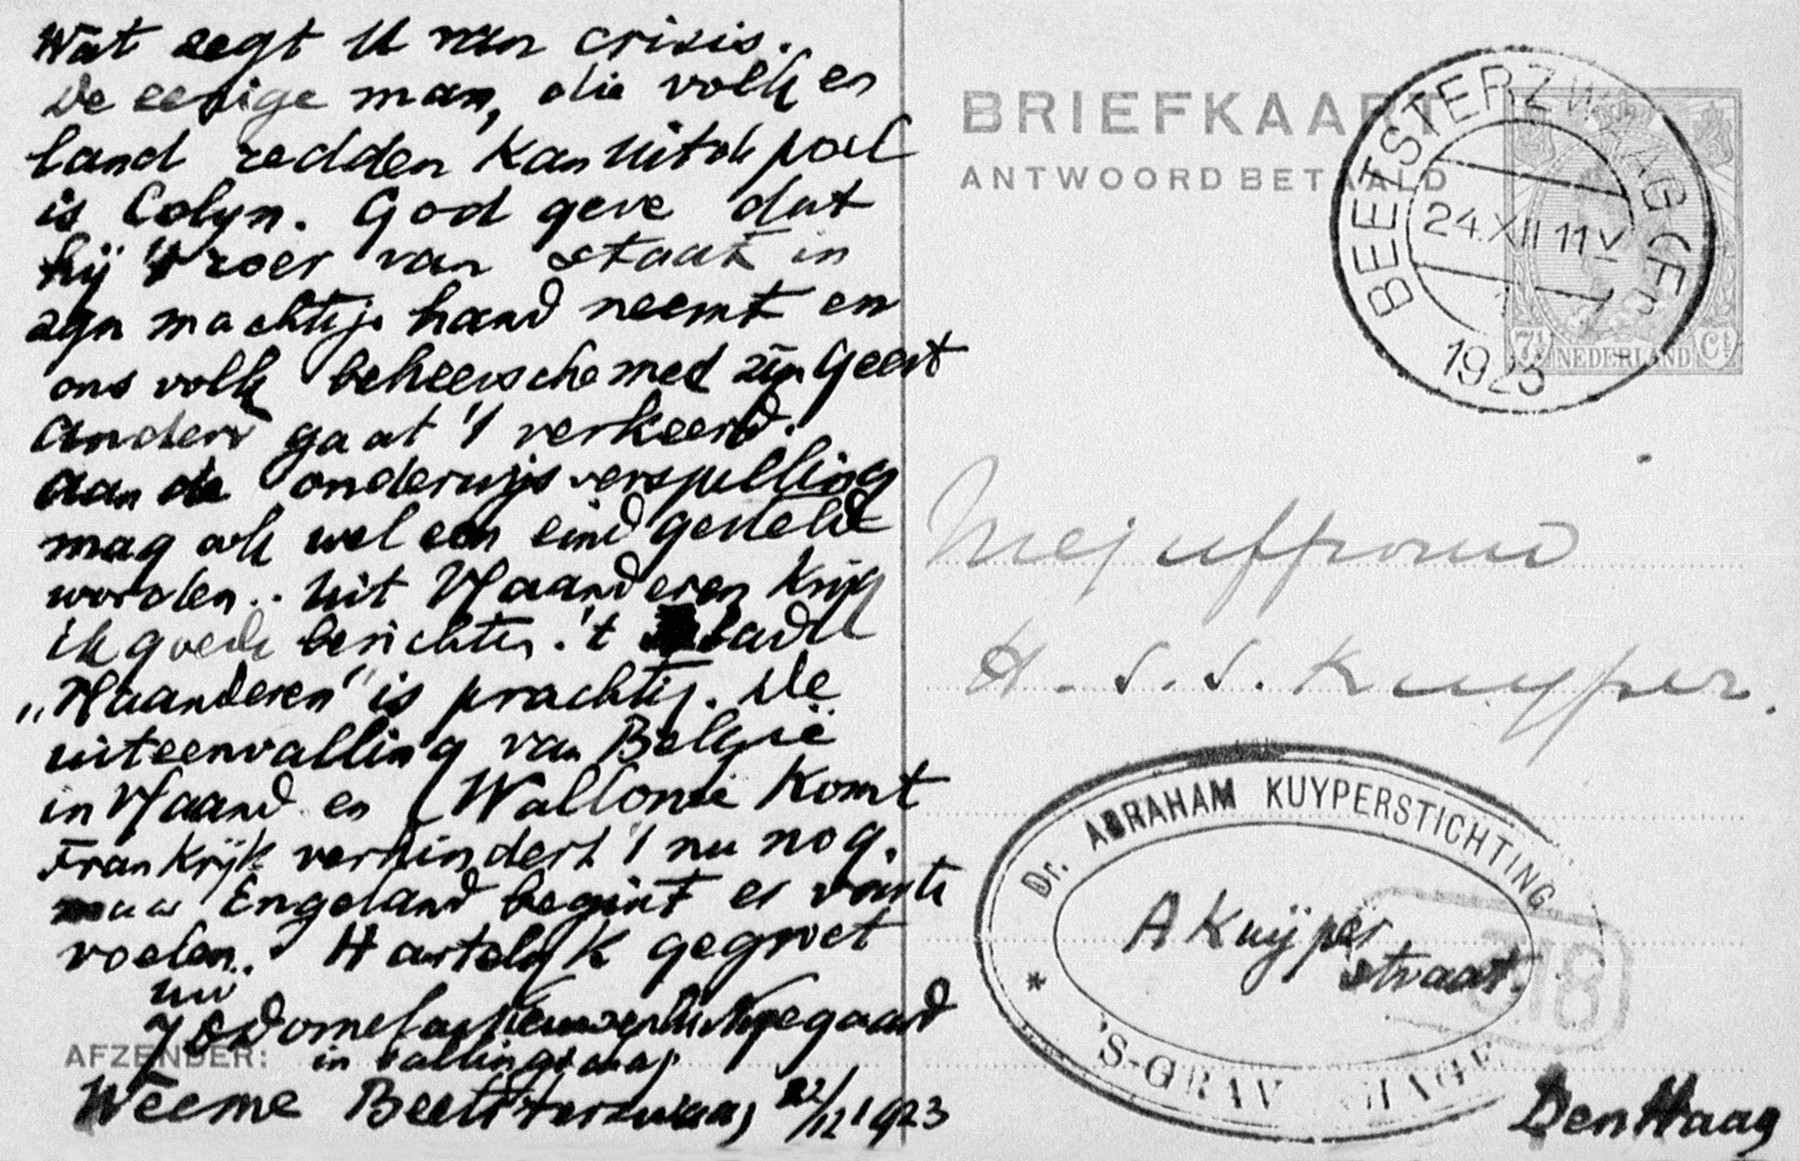 Wat zegt U van crisis.
De eenige man, die volk en
land redden kan uit de poel
is Colyn. God geve dat
hij 't roer van staat in
zyn machtige hand neemt en
ons volk beheersche met zijn Geest
Anders gaat 't verkeerd.
Aan de onderwijsverspilling
mag ook wel een eind gesteld
worden.. Uit Vlaanderen krijg
ik goede berichten. 't blad
„Vlaanderen" is prachtig. De
uiteenvalling van België
in Vlaand. en Wallonië komt
Frankrijk verhindert 't nu nog.
maar Engeland begint er voor te
voelen.. Hartelijk gegroet
uw
J D Domela Nieuwenhuis Nyegaard
AFZENDER:
in ballingschap
Weeme Beetsterzwaag 22/12 1923
BRIEFKAART
ANTWOORD BETAALD
BEETSTERZWAAG (FR)
24.XII 11V
1923
7½ NEDERLAND Ct
Mejuffrouw
H. S. S. Kuyper.
Dr. ABRAHAM KUYPERSTICHTING
A Kuijper
straat.
318
* 'S-GRAVENHAGE
Den Haag